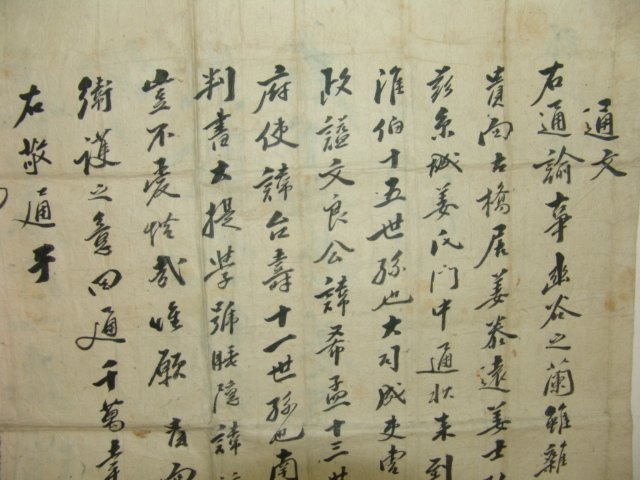 通文
右通諭事幽谷之蘭雖雜
貴面古橋居姜泰遠姜士
彭系誠姜氏門中通狀來到
淮伯十五世孫也大司成吏曹
改諡文良公諱希孟十三世
府使諱台壽十一世孫也南
判書大提學號睡隱諱
豈不愛惜哉唯願 貴面
衛護之意回通千萬幸
右敬通于